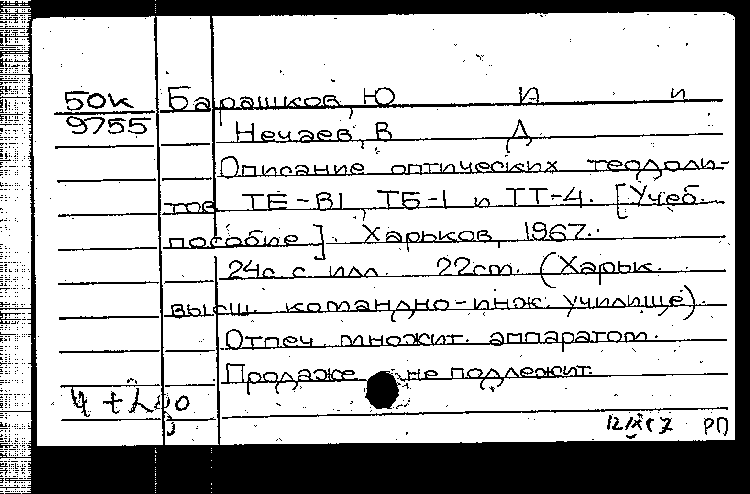 50к Барашков, Ю И и
9755 Нечаев, В Д
Описание оптических теодоли-
тов ТЕ-В1, ТБ-1 и ТТ-4. [Учеб.
пособие]. Харьков, 1967.
24с. с илл. 22cm. (Харьк.
высш. командно-инж. училище).
Отпеч. множит. аппаратом.
Продаже не подлежит.
РП